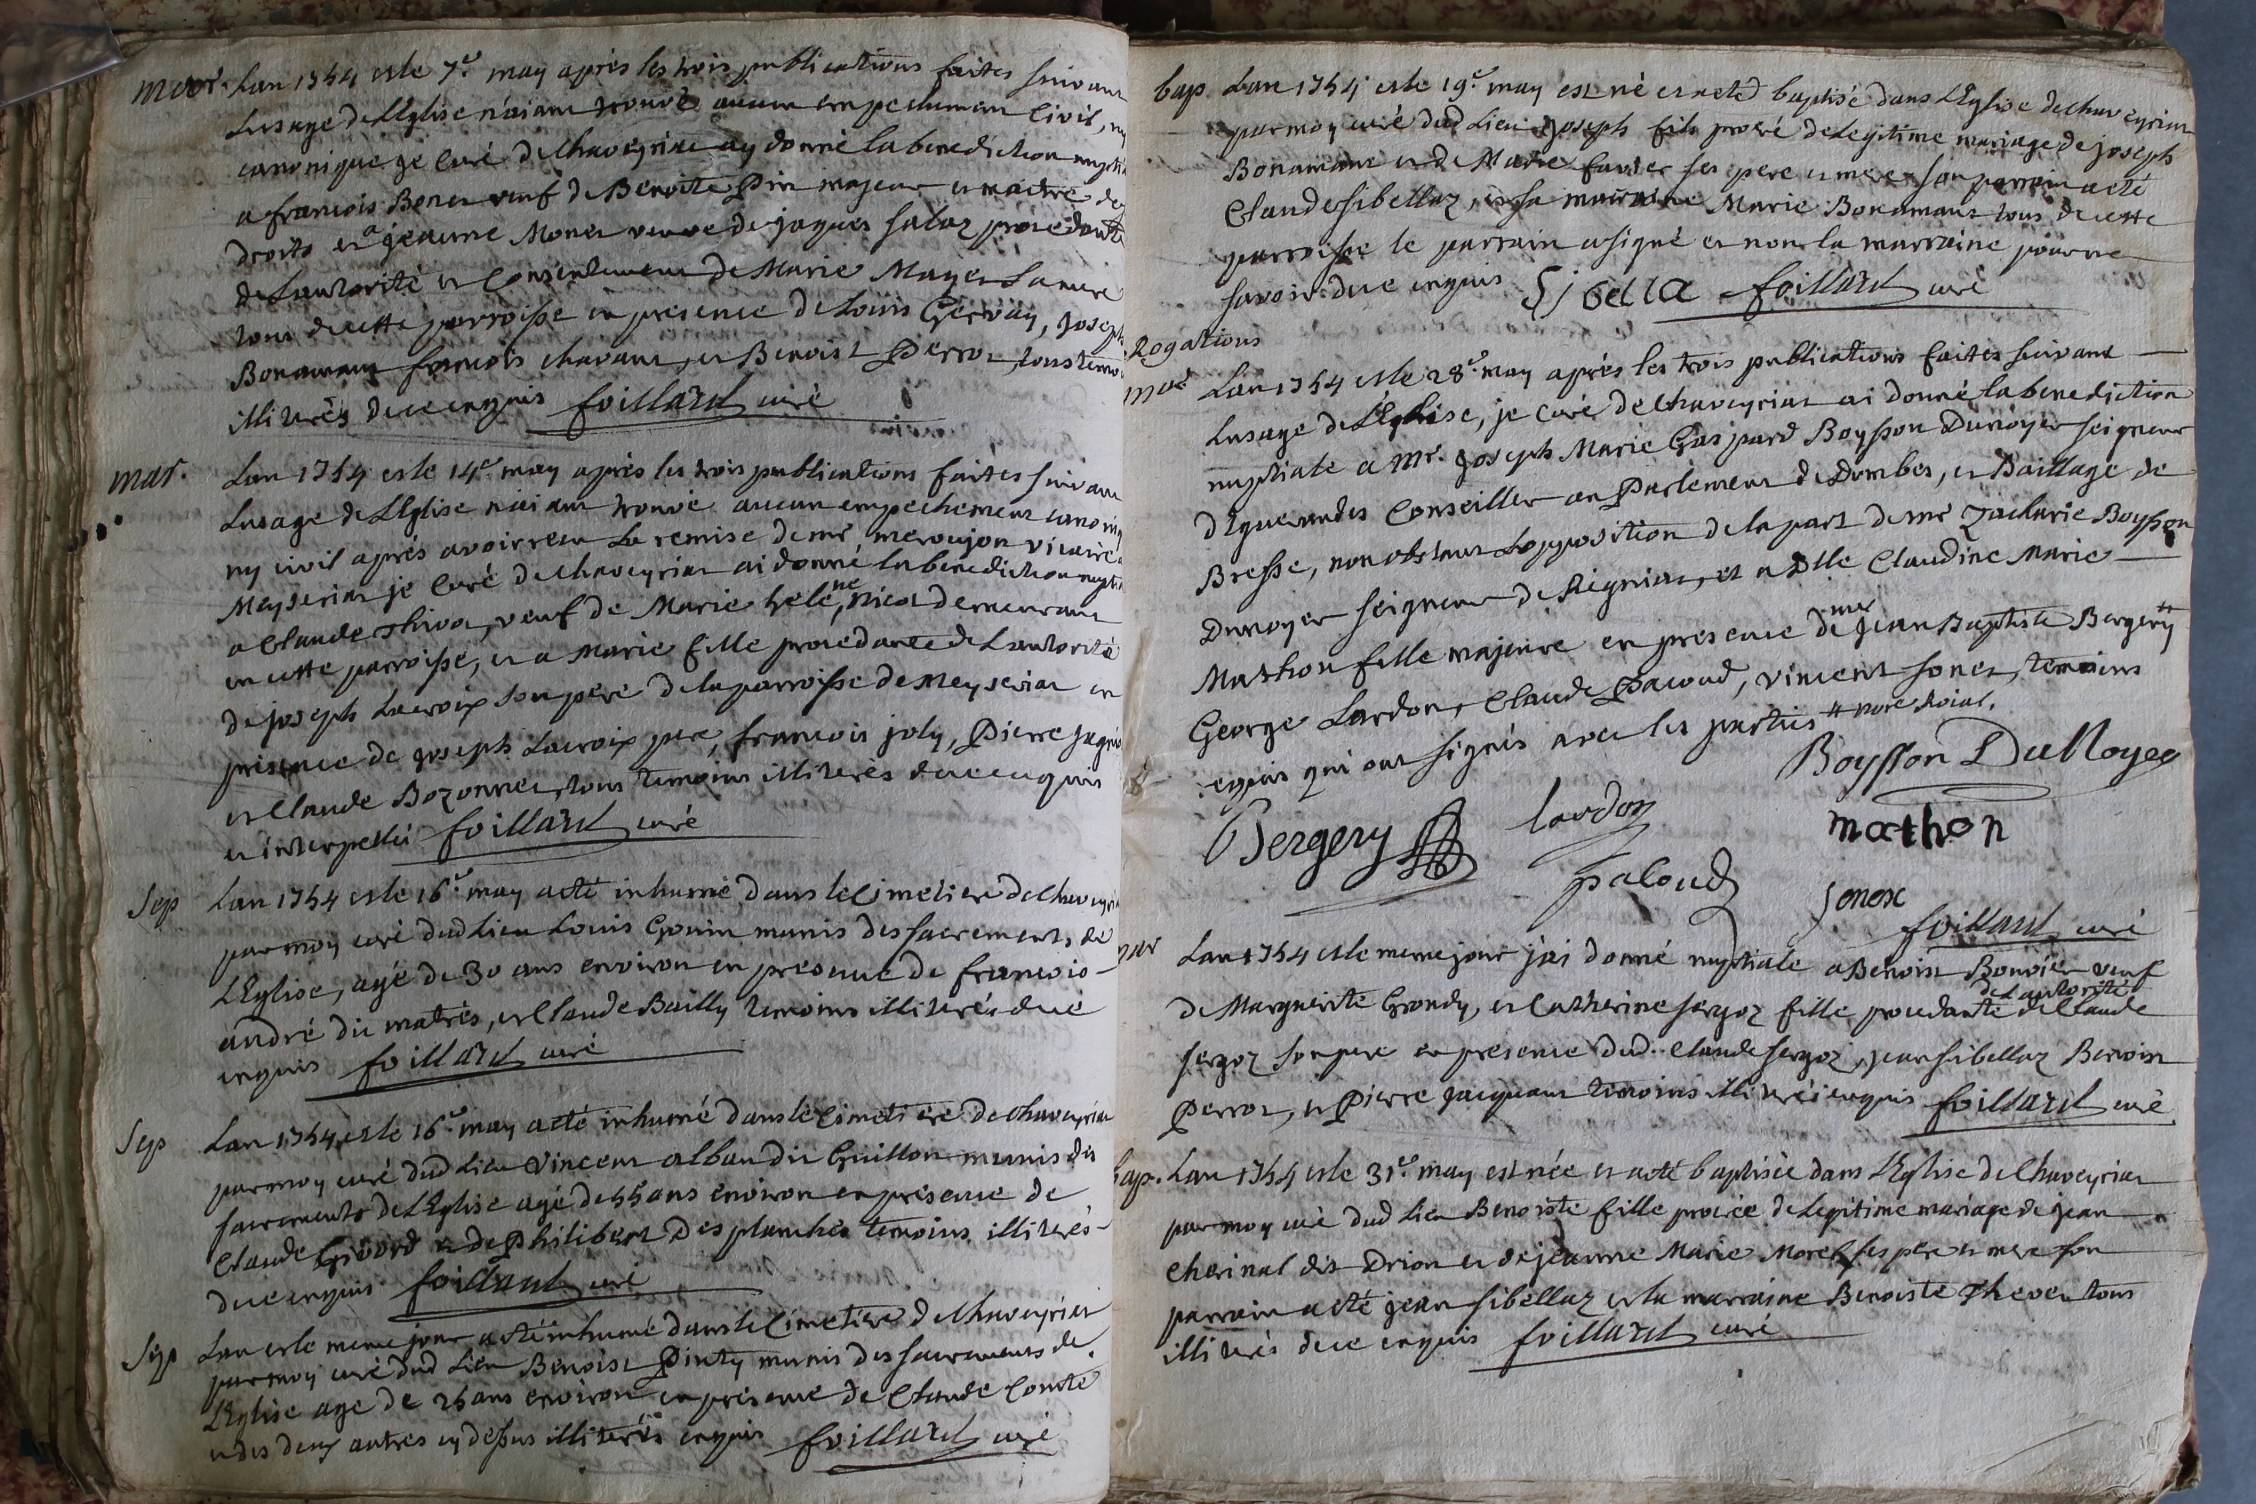 mar. Lan 1754 et le 7e. may après les trois publications faites suivant
Lusage de L'Eglise n'aiant trouvé aucun empechement Civil, ny
canonique je Curé de chaveyriat ay donné la benediction nuptia
a francois Bonet veuf de Benoite Pin majeur et maitre de
droits et a jeanne Monet veuve de jaques salaz procedante
de Lautorité et Consentement de Marie Mayet La mere
tous de cette parroisse en presence de Louis Gervay, joseph
Bonamant francois chavant, et Benoist Perrot tous temoi
illiterés de ce enquis foillard curé
mar. Lan 1754 et le 14e. may après les trois publications faites suivant
Lusage de L'Eglise n'aiant trouvé aucun empechement canoniq
ny civil après avoir reçu La remise de mr meroujon vicaire a
Meyseriat je Curé de chaveyriat ai donné la benediction nuptia
a Claude thivot, veuf de Marie helene, nicot demeurant
en cette parroisse, et a Marie fille procedante de Lautorité
de joseph Lacroix son pere de la parroisse de Meyseriat en
presence de joseph Lacroix pere, francois joly, Pierre
et Claude Bozonnet, tous temoins illiterés de ce enquis
et interpellés foillard curé
Sep Lan 1754 et le 16e. may a eté inhumé dans le Cimetiere de chaveyria
par moy curé dud Lieu Louis Gonin munis des sacrements de
L'Eglise, agé de 30 ans environ en presence de francois
andré dit matrés, et Claude Bailly temoins illiterés de ce
enquis foillard curé
Sep Lan 1754 et le 16e. may a eté inhumé dans le Cimetiere de chaveyriat
par moy curé dud Lieu Vincent alban dit Guillon munis des
sacrements de L'Eglise agé de 55 ans environ en presence de
Claude Givord et de Philibert Desplanches temoins illiterés
de ce enquis foillard curé
Sep Lan et le meme jour a eté inhumé dans le Cimetiere de chaveyriat
par moy curé dud Lieu Benoist Pinty munis des sacrements de
L'Eglise age de 25 ans environ en presence de Claude Comte
et des deux autres cy dessus illiterés enquis foillard curé
bap Lan 1754 et le 19e. may est né et a eté baptisé dans L'Eglise de chaveyriat
par moy curé dud Lieu joseph fils procré de Legitime mariage de joseph
Bonamant et de Marie favier ses pere et mere son parrain a eté
Claude sibellaz, et sa marraine Marie Bonamant tous de cette
parroisse le parrain a signé et non la marraine pour ne
savoir de ce enquis Sibella foillard curé
Rogations
mar Lan 1754 et le 28e. may après les trois publications faites suivant
Lusage de L'Eglise, je Curé de chaveyriat ai donné la benediction
nuptiale a Mr. joseph Marie Gaspard Boysson Dunoyer seigneur
d'Eguerandes Conseiller au Parlement de Dombes, et Baillage de
Bresse, non obstant Lopposition de la part de mr Zacharie Boysson
Dunoyer seigneur de Rigniat, et a Dlle Claudine Marie
Mathon fille majeure en presence de mre jean Baptiste Bergery #
George Lardon, Claude Pacoud, vincent sonet, temoins
requis qui ont signés avec les parties # nore Roial.
Boysson DuNoyer
Bergery lardon mathon
pacoud
sonex
foillard curé
mar Lan 1754 et le meme jour j'ai donné nuptiale a Benoist Bouvier veuf
de Marguerite Grondy, et Catherine sergoz fille procedante de Lautorité de Claude
sergoz son pere en presence dud. Claude sergoz, jean sibellaz Benoist
Perrot, et Pierre jacquant temoins illiterés enquis foillard curé
bap. Lan 1754 et le 31e. may est née et a eté baptisée dans L'Eglise de Chaveyriat
par moy curé dud Lieu Benoiste fille procrée de Legitime mariage de jean
cherinal dit Drion et de jeanne Marie Morel ses pere et mere son
parrain a eté jean sibellaz et la marraine Benoiste thevet tous
illiterés de ce enquis foillard curé